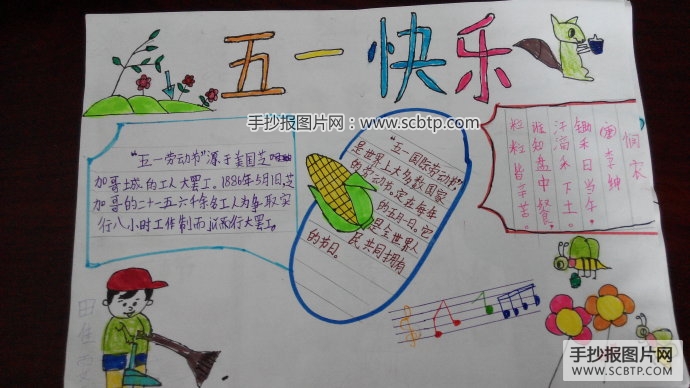 五一快乐
手抄报图片网：www.scbtp.com
"五一劳动节"源于美国芝
加哥士成的工人大罢工。1886年5月1日,芝
加哥的二十一万六千余名工人为争取实
行八小时工作制而
行大罢工。
"五一国际劳动节"
是世界上大多数国家
的劳动节。定在每年
的五月一日。它
是全世界人
民共同拥有
的节日。
悯农
唐 李绅
锄禾日当午，
汗滴禾下土。
谁知盘中餐，
粒粒皆辛苦。
手抄报图片网
WWW.SCBTP.COM